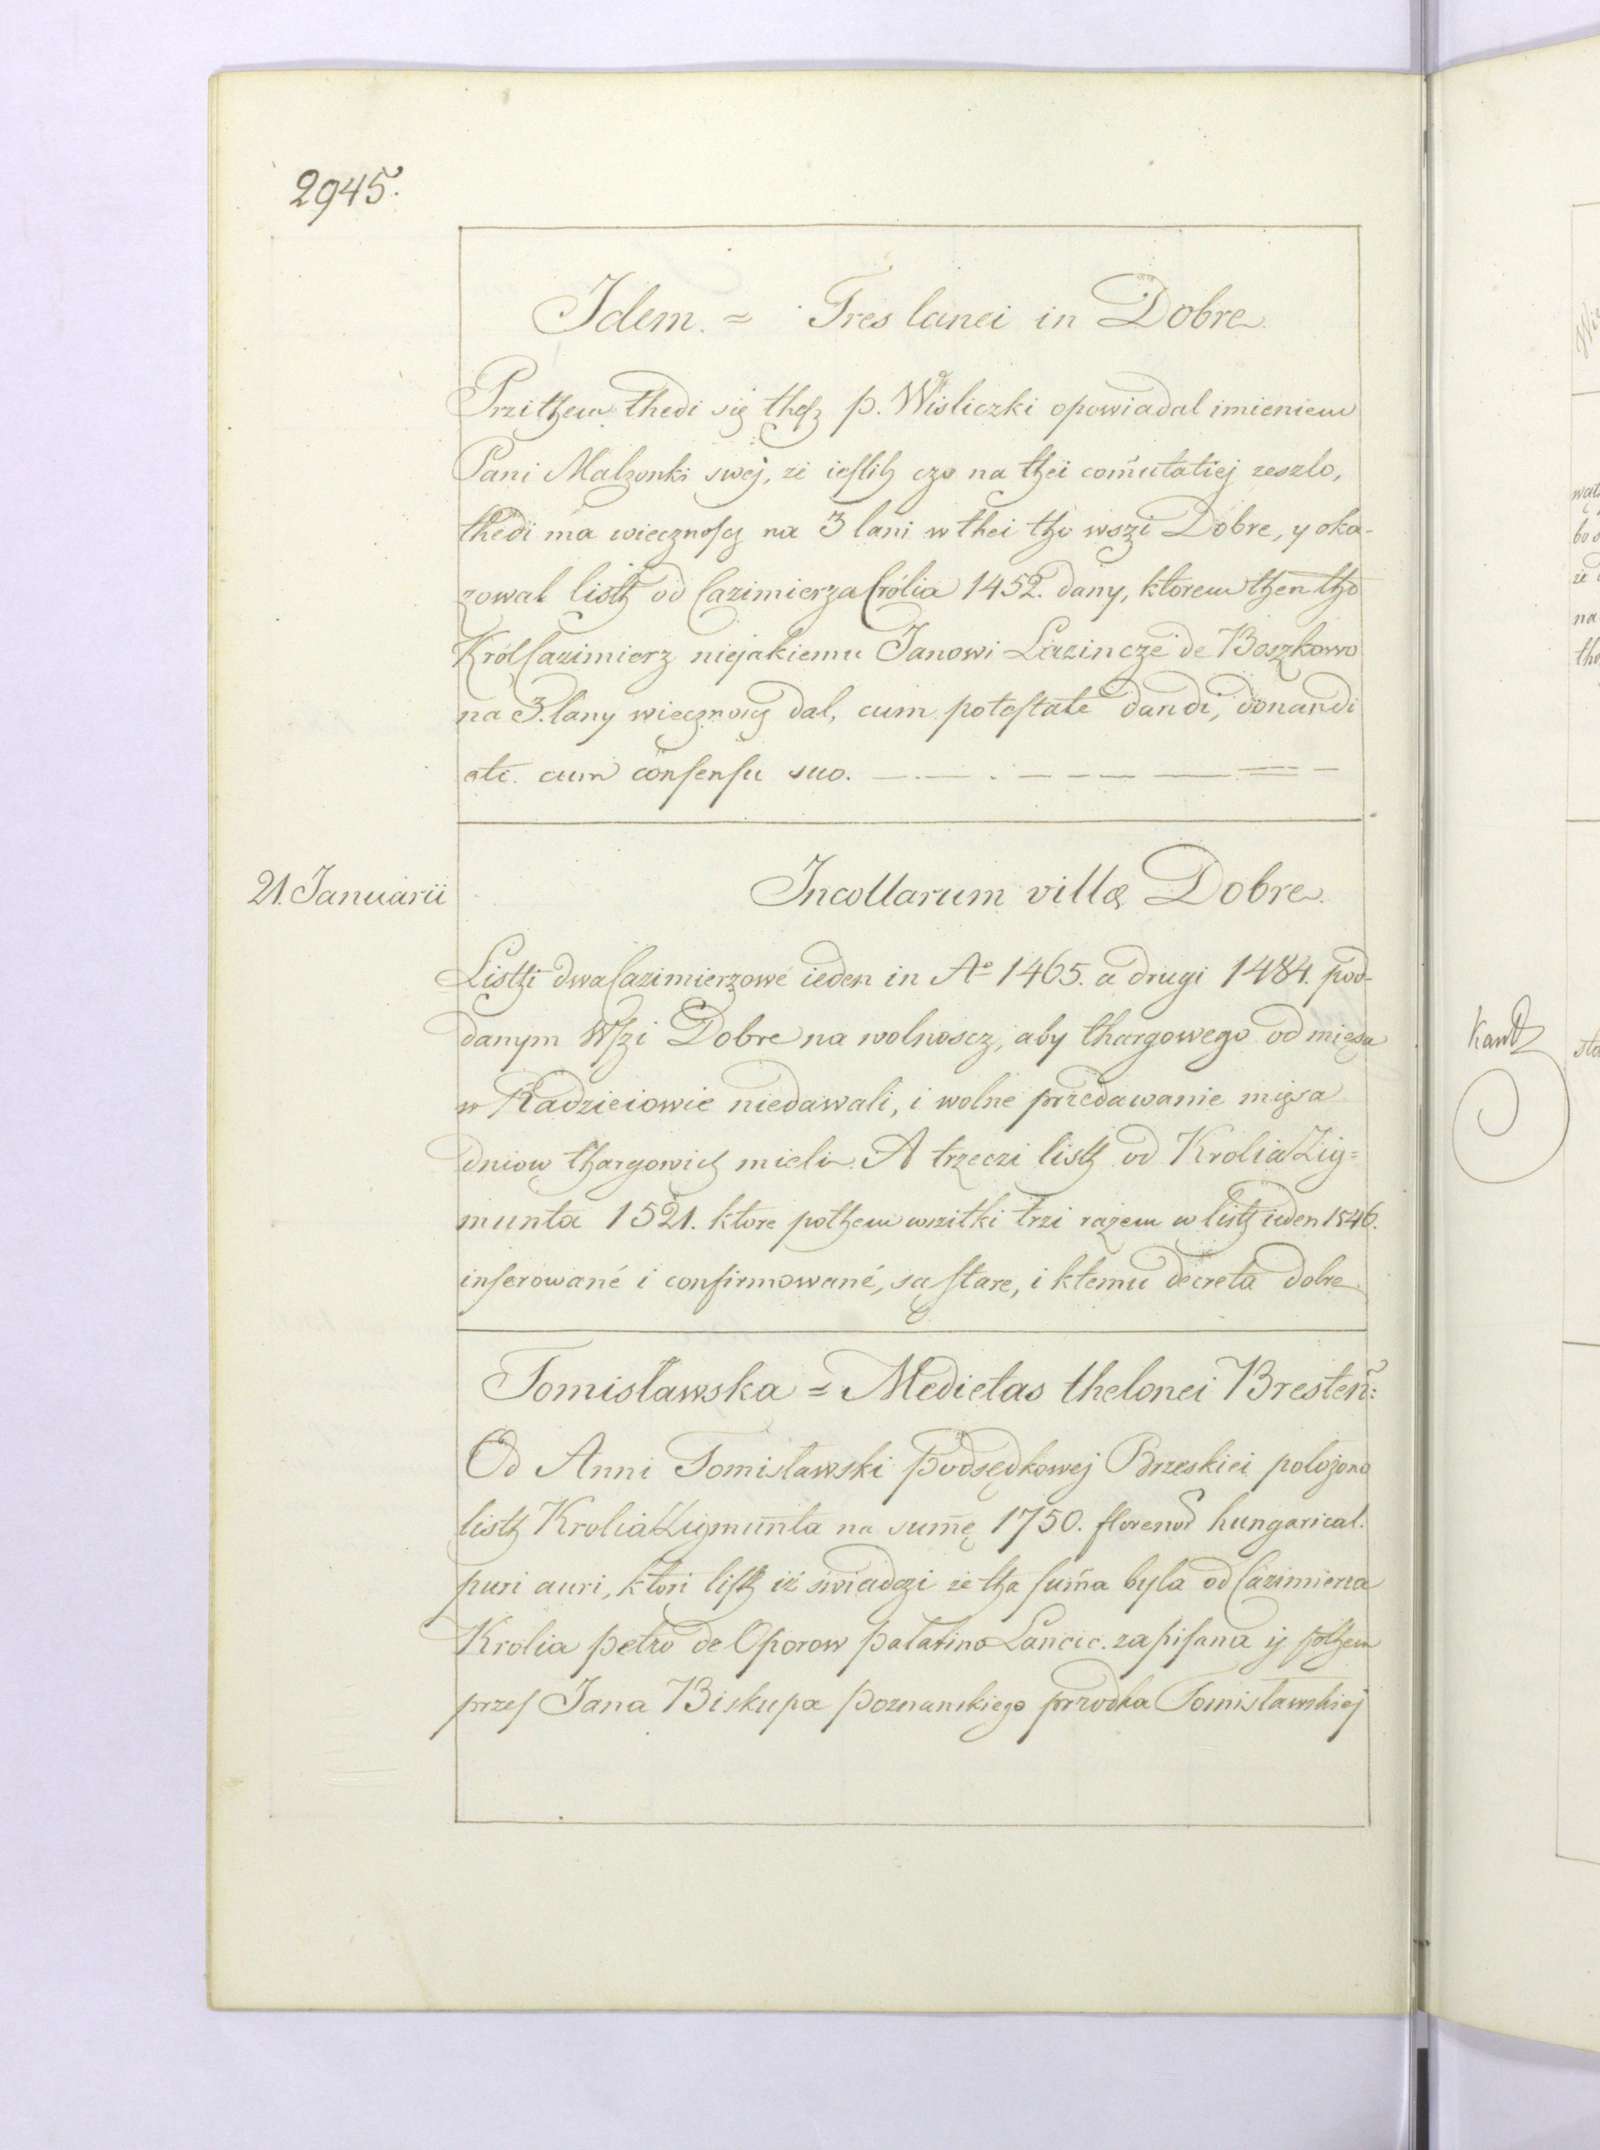 2945.
Idem. = Tres lanei in Dobre.
Przithem thedi się thesz p. Wisliczki opowiadal imieniem
Pani Malzonki swej, zi iesflih czo na thei com̃utatiej zeszlo,
thedi ma wiecznoscz na 3 lani w thei tho wszi Dobre, y oka-
zowal listh od Cazimierza Crólia 1452. dany, ktorem then tho
Król Cazimierz niejakiemu Janowi Lazincze de Boszkowo
na 3. lany wiecznoscz dal, cum potestate dandi, donandi
etc. cum consensu suo.
21. Januarii
Incollarum villæ Dobre.
Listhi dwa Cazimierzowe ieden in Aº 1465. a drugi 1484. pod-
danym Wszi Dobre na wolnoscz, aby thargowego od mięsa
w Radzieiowie niedawali, i wolne przedawanie mięsa
dniow thargowich mieli. A trzeczi listh od Krolia Zig=
munta 1521. ktore pothem wszitki trzi razem w listh ieden 1546.
inserowané i confirmowané, są stare, i ktemu decreta dobre
Tomisławska = Medietas thelonei Bresteñ:
Od Anni Tomisławski podsędkowej Brzeskiei polozono
listh Krolia Zigmunta na sum̃ę 1750. florenor hungarical.
puri auri, ktori listh iż swiadczi że tha sum̃a byla od Cazimierza
Krolia petro de Oporow palatino Lancic. zapisana ij pothem
przes Jana Biskupa poznanskiego przodka Tomisławskiej